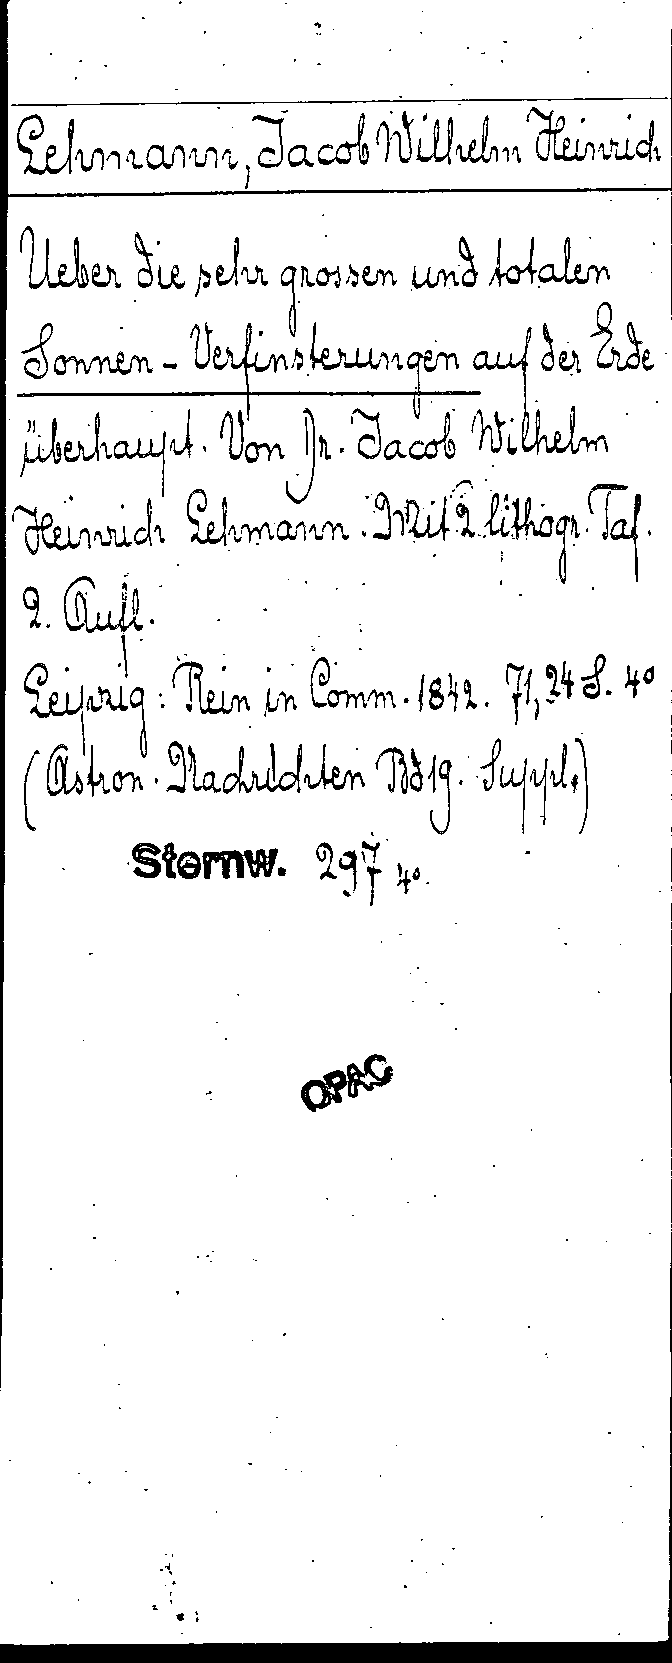 Lehmann, Jacob Wilhelm Heinrich
Ueber die sehr grossen und totalen
Sonnen-Verfinsterungen auf der Erde
überhaupt. Von Dr. Jacob Wilhelm
Heinrich Lehmann. Mit 2 lithogr. Taf.
2. Aufl.
Leipzig: Rein in Comm. 1842. 71, 24 S. 4°
(Astron. Nachrichten Bd 19. Suppl.)
Sternw. 297 4°.
OPAC